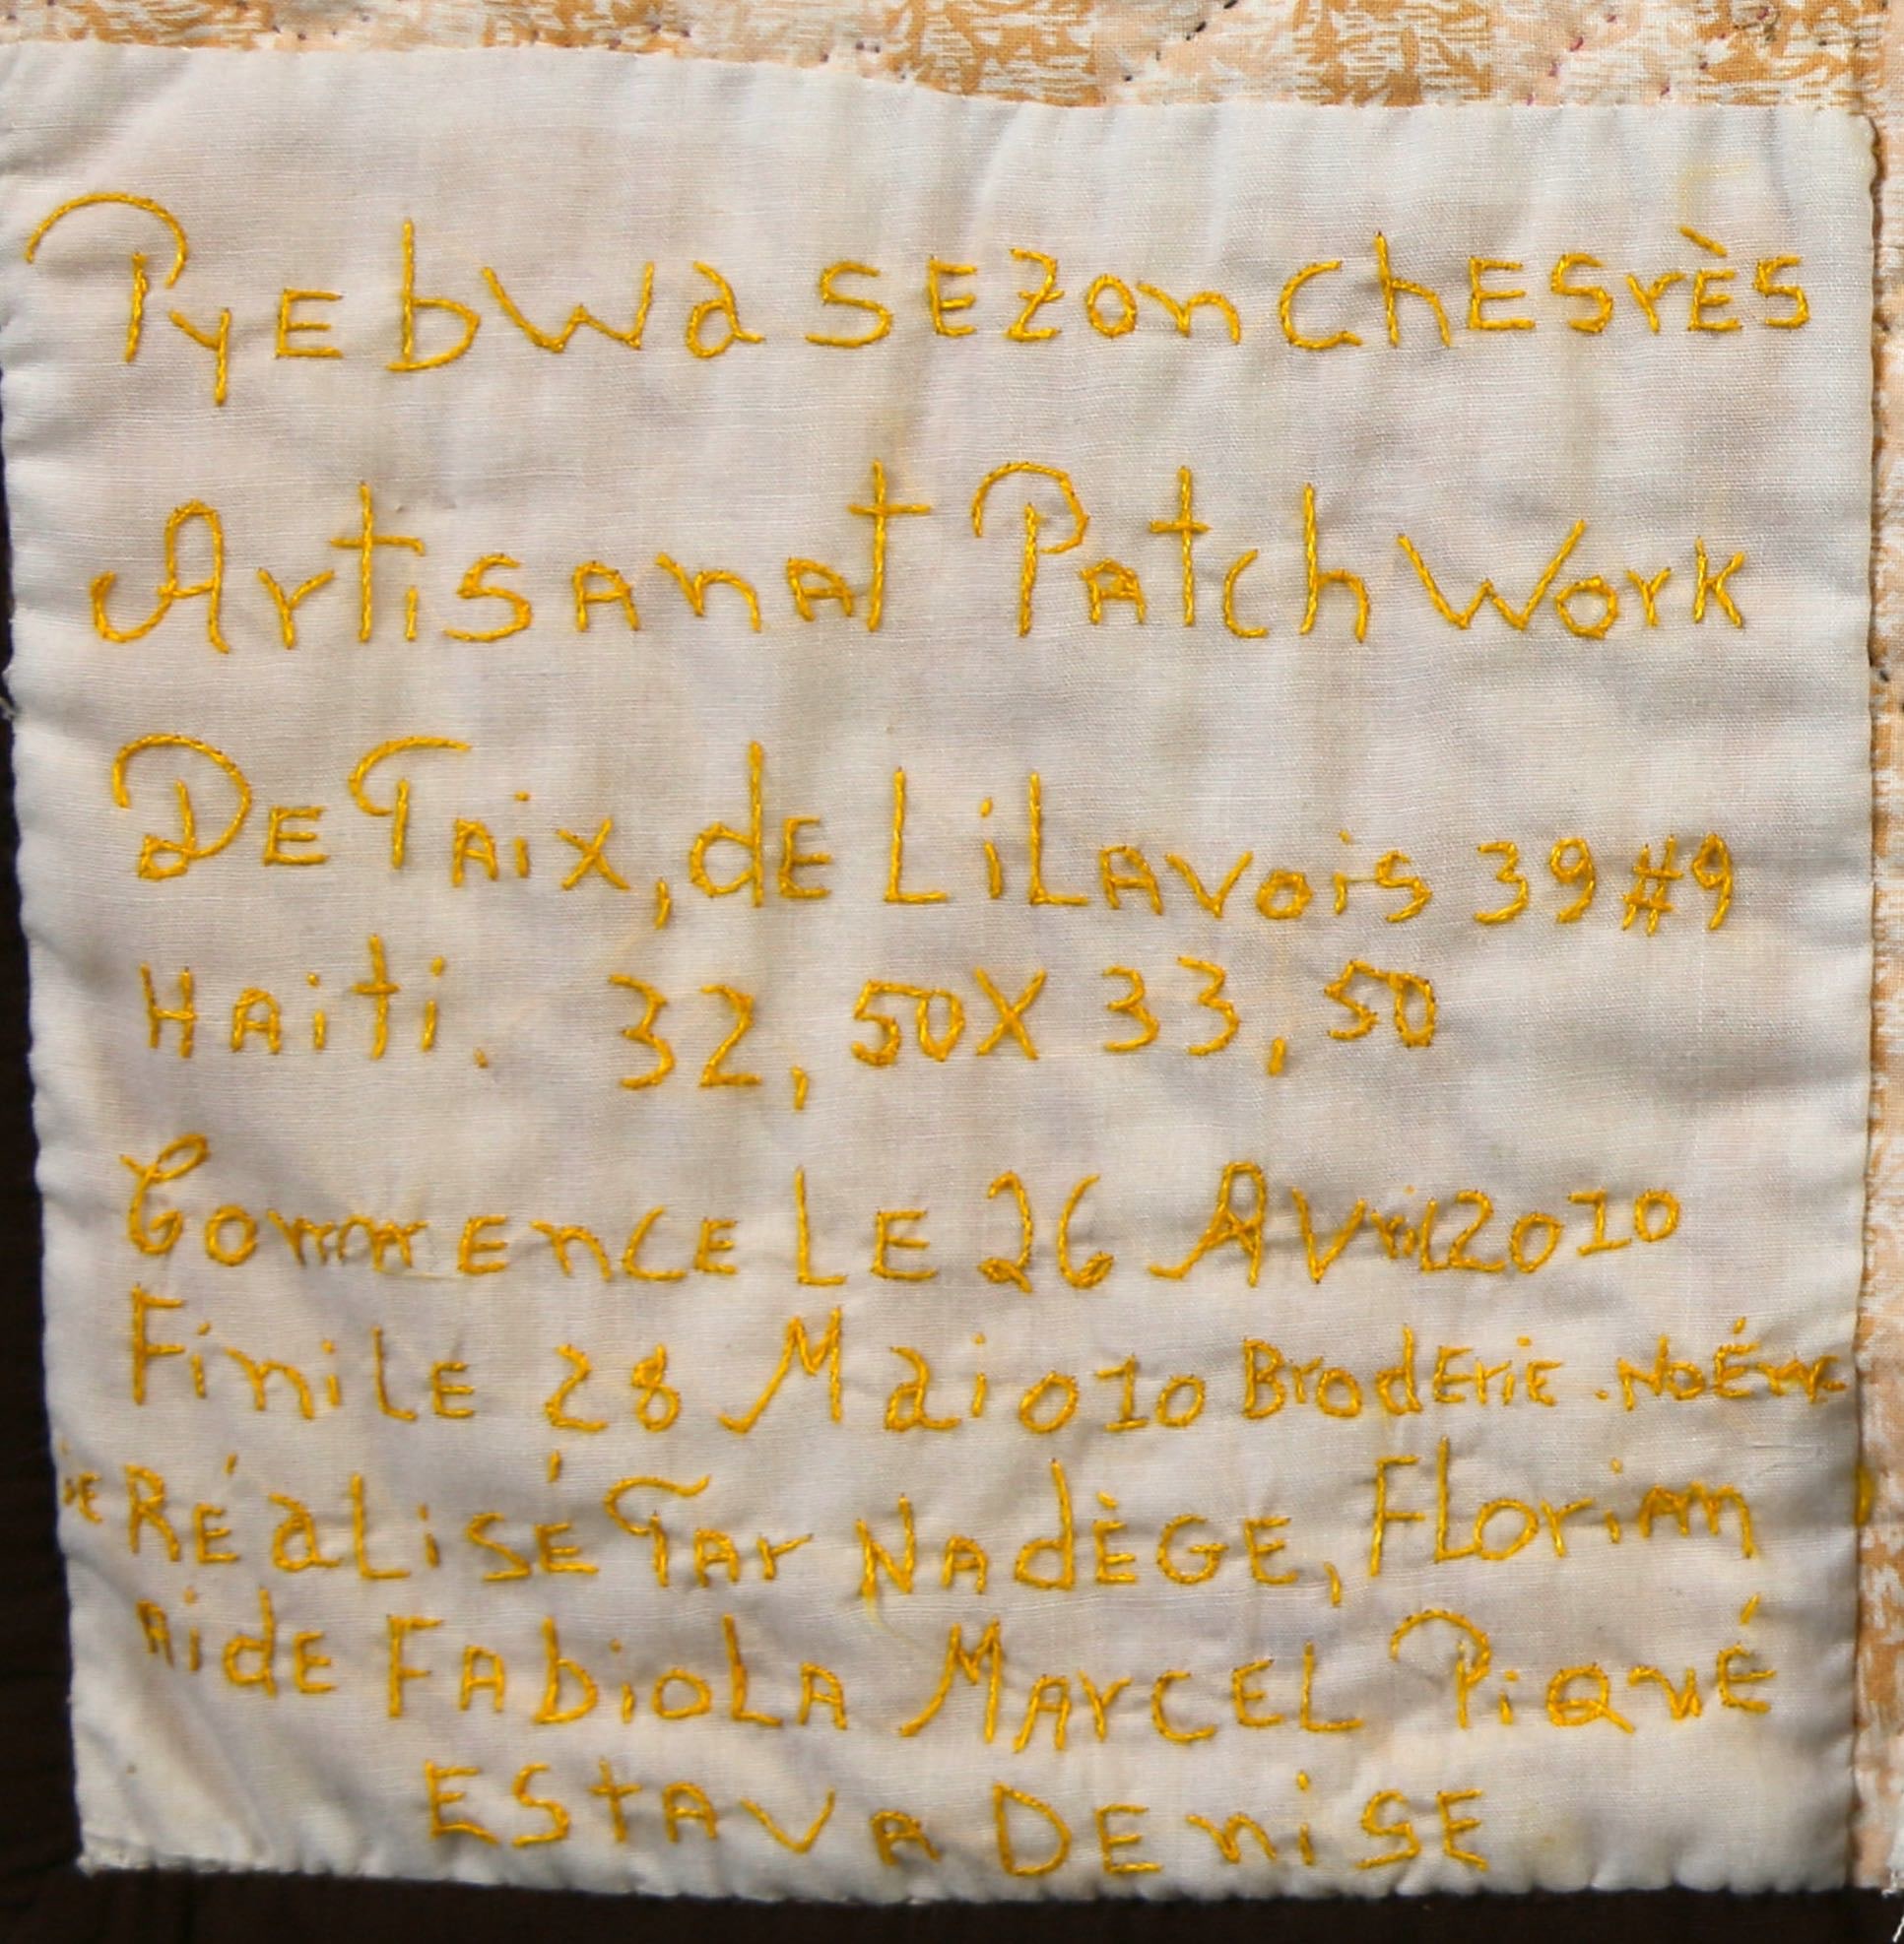 PyEbwa SEzon ChESrÈs
Artisanat Patch Work
DE Paix, de LiLavois 39#9
Haiti. 32,50X 33,50
CommENCE LE 26 Avril 2010
Fini LE 28 Mai 010 BrodEriE. NoÉm
iE RÉaLisÉ Par NadÈGE, FLorian
aidE FabioLa MarCEL PiQuÉ
EStava DEniSE